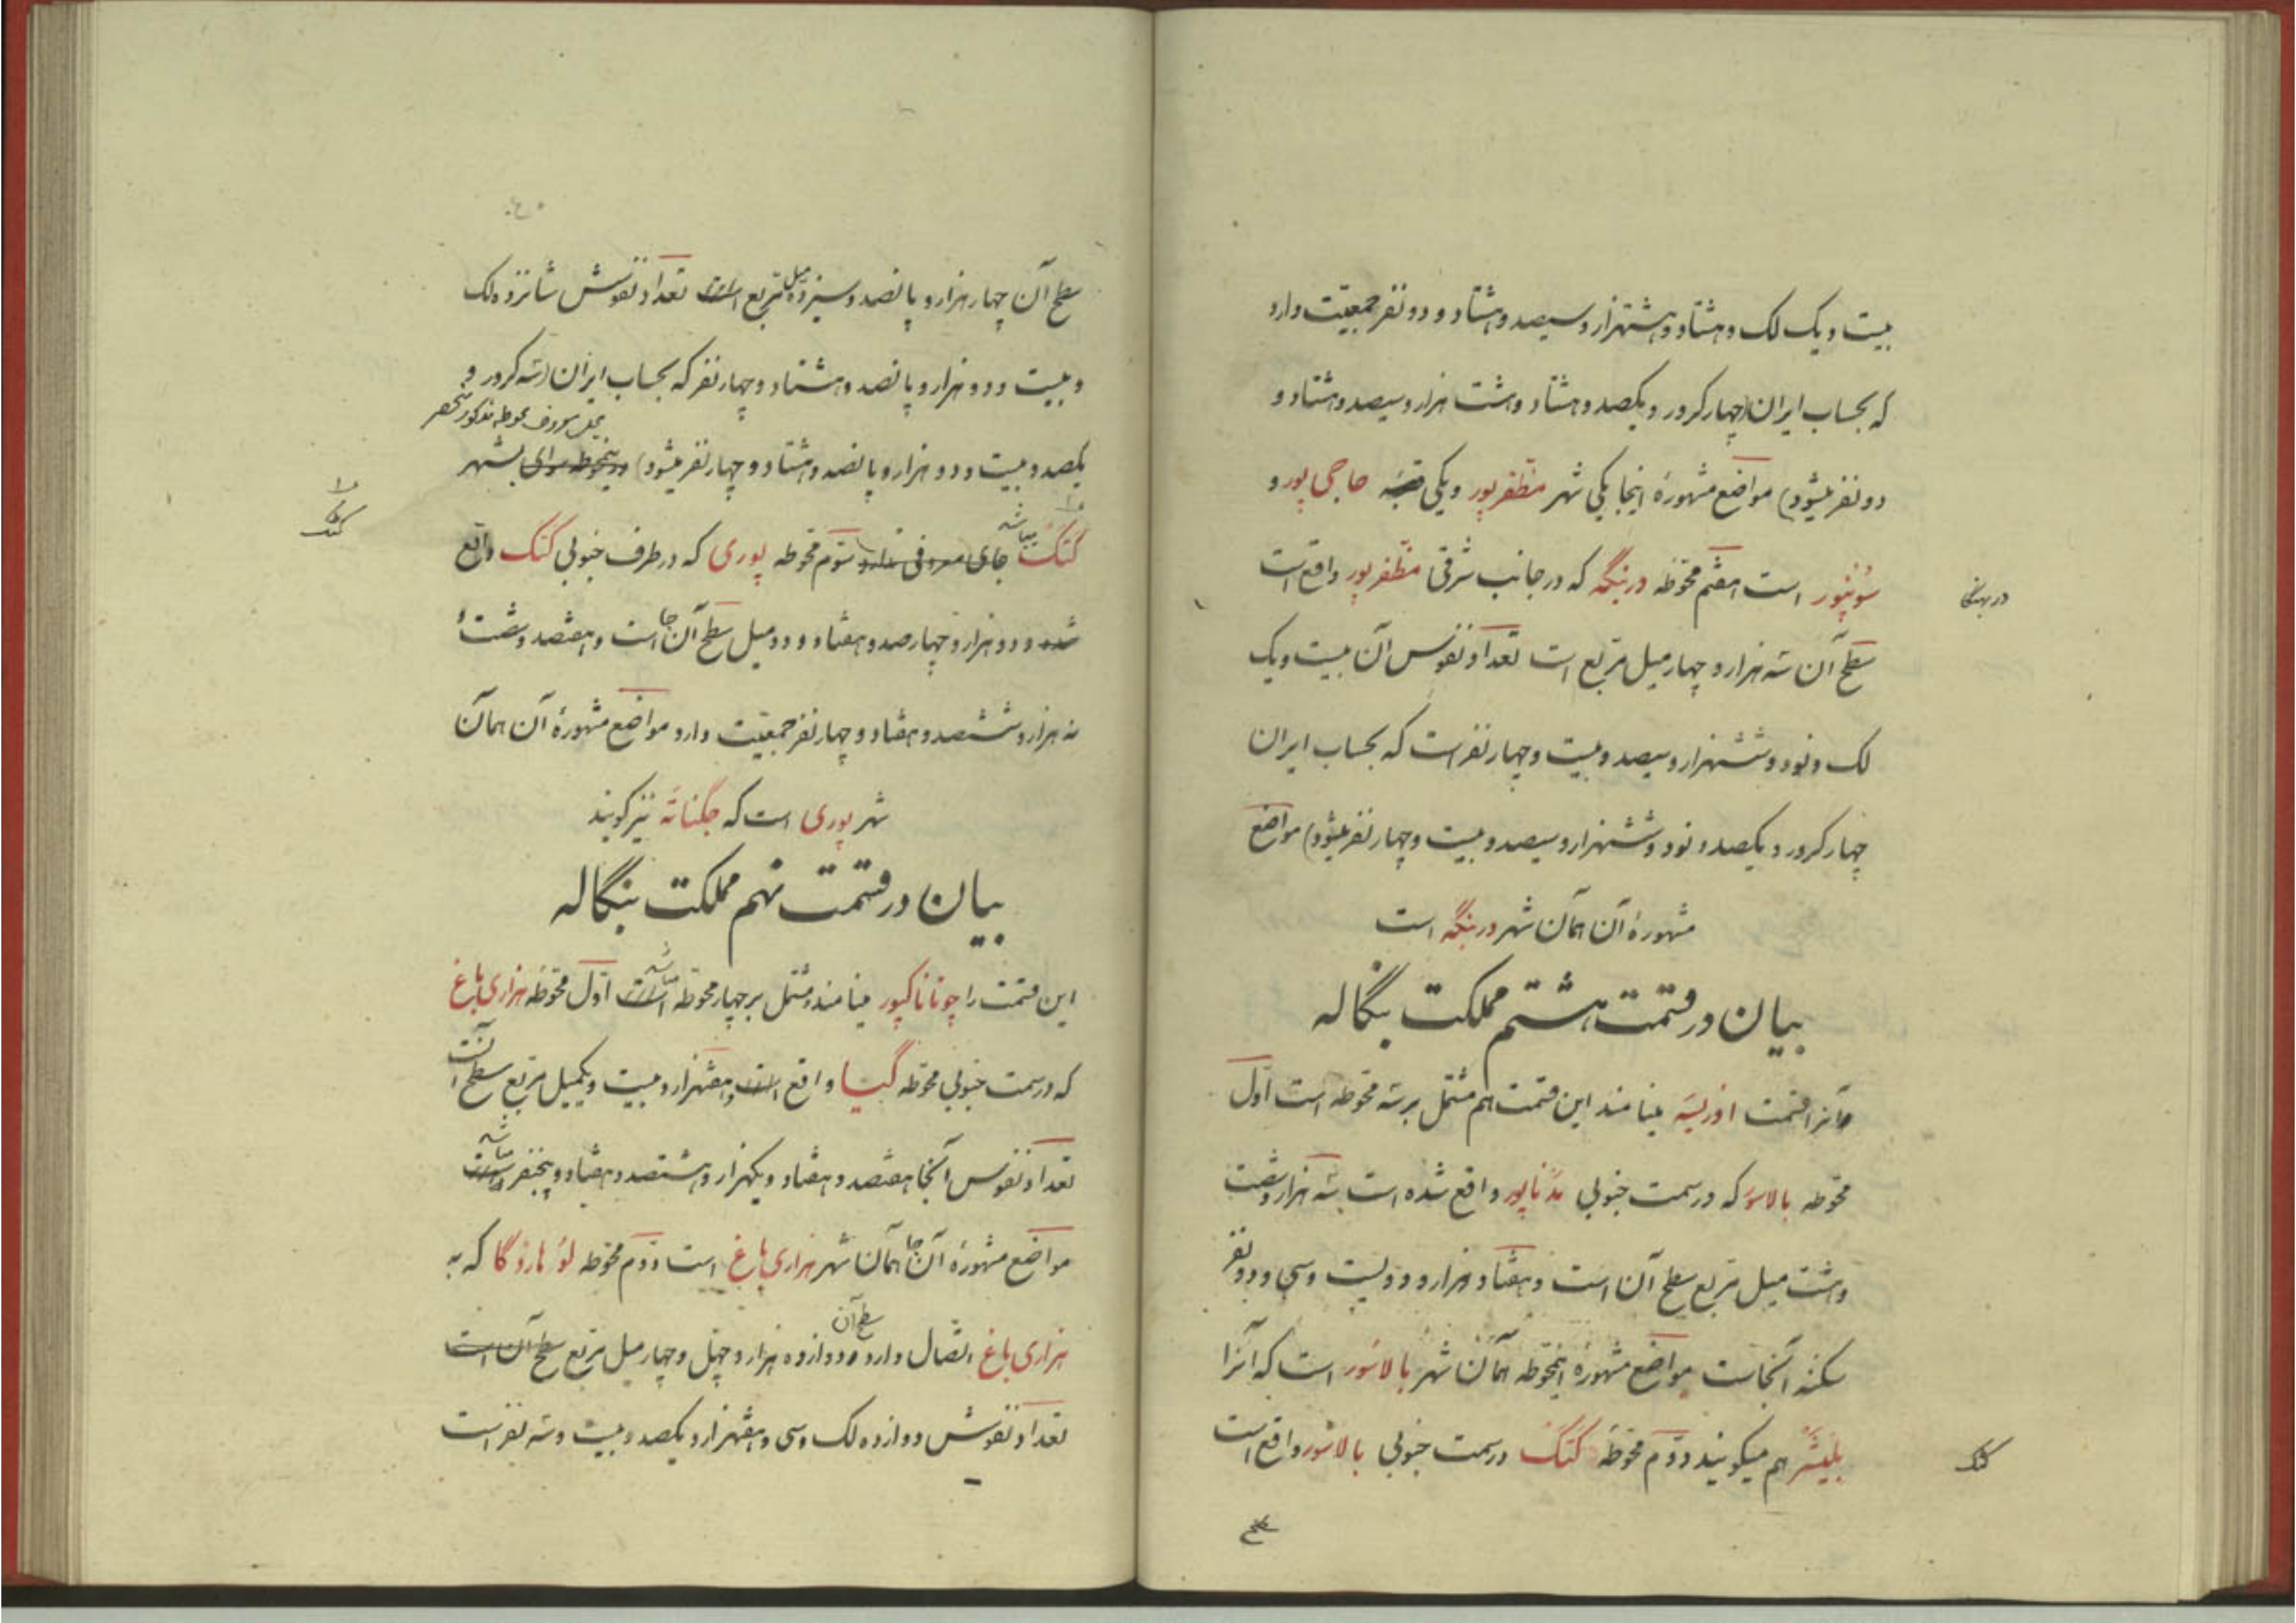 بیست و یک لک و هشتاد و هشتهزار و سیصد و هشتاد و دو نفر جمعیّت دارد
که بحساب ایران (چهار کرور و یکصد و هشتاد و هشت هزار و سیصد و هشتاد و
دو نفر میشود) مواضع مشهورهٔ اینجا یکی شهر مظفرپور و یکی قصبه حاجی پور و
سونپور است هفتم محوّطه دربنگه که در جانب شرقی مظفرپور واقع است
دربهنگا
سطح آن سه هزار و چهار میل مربع است تعداد نفوس آن بیست و یک
لک و نود و ششهزار و سیصد و بیست و چهار نفر است که بحساب ایران
چهار کرور و یکصد و نود و ششهزار و سیصد و بیست و چهار نفر میشود) مواضع
مشهورهٔ آن همان شهر دربنگه است
بیان در قسمت هشتم مملکت بنگاله
و آنرا قسمت اوریسه مینامند این قسمت هم مشتمل بر سه محوّطه است اوّل
محوّطه بالاسور که در سمت جنوبی مدناپور واقع شده است سه هزار و شصت
و هشت میل مربع سطح آن است و هفتاد و هزار و دویست و سی و دو نفر
سکنهٔ آنجاست مواضع مشهورهٔ اینمحوّطه همان شهر بالاسور است که آنرا
بلیشر هم میگویند دوّم محوّطه کتک در سمت جنوبی بالاسور واقع است
کتک
سطح
سطح آن چهار هزار و پانصد و سیزده میل مربع است تعداد نفوسش شانزده لک
و بیست و دو هزار و پانصد و هشتاد و چهار نفر که بحساب ایران (سه کرور و
یکصد و بیست و دو هزار و پانصد و هشتاد و چهار نفر میشود) در اینمحوطه سوای بشهر
محل معروف محوطه مذکور منحصر
کتک میباشد جای معروفی ندارد سوّم محوّطه پوری که در طرف جنوبی کتک واقع
کتک
شده و دو هزار و چهارصد و هفتاد و دو میل سطح آن جا است و هفتصد و شصت و
نه هزار و ششصد و هفتاد و چهار نفر جمعیّت دارد مواضع مشهورهٔ آن همان
شهر پوری است که جگناته نیز گویند
بیان در قسمت نهم مملکت بنگاله
این قسمت را چوتاناگپور مینامند و مشتمل بر چهار محوّطه است میباشد اوّل محوّطه هزاری باغ
که در سمت جنوبی محوّطه گیا واقع است و هفتهزار و بیست و یکمیل مربع سطح آنست
تعداد نفوس آنجا هفتصد و هفتاد و یکهزار و هشتصد و هفتاد و پنجنفر است میباشد
مواضع مشهورهٔ آن جا همان شهر هزاری باغ است دوّم محوّطه لوهاردگا که به
هزاری باغ اتّصال دارد و سطح آن دوازده هزار و چهل و چهار میل مربع سطح آن است
تعداد نفوسش دوازده لک و سی و هفتهزار و یکصد و بیست و سه نفر است